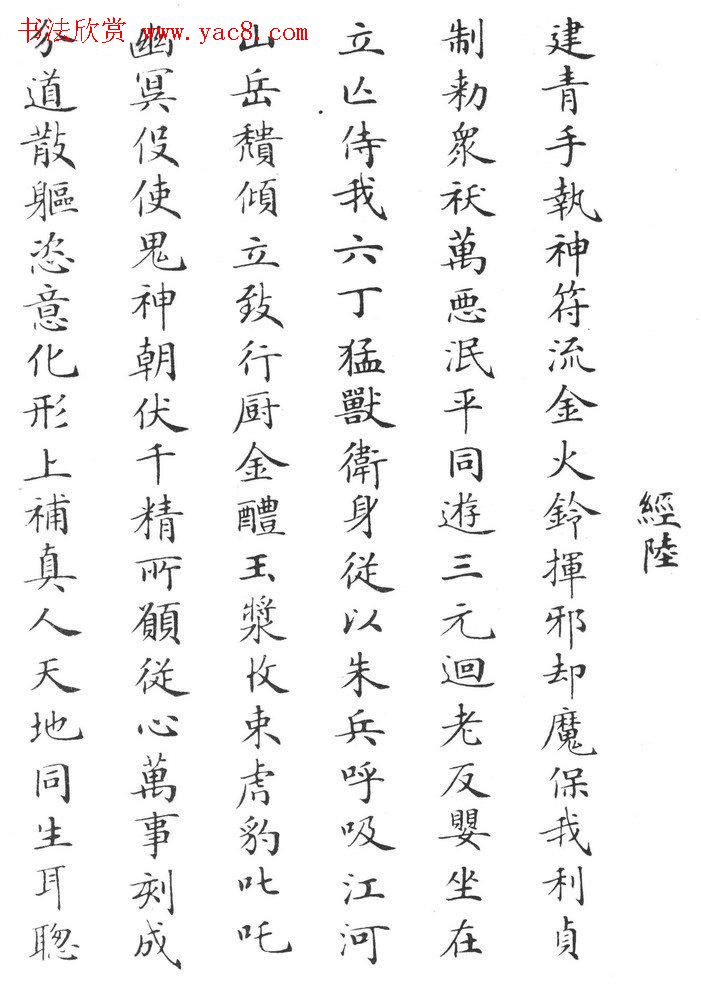 書法欣赏 www.yac8.com
經陸
建青手執神符流金火鈴揮邪却魔保我利貞
制勑衆袄萬悪泯平同遊三元迴老反嬰坐在
立亡侍我六丁猛獸衛身從以朱兵呼吸江河
山岳穨傾立致行厨金醴玉漿收束虎豹叱吒
幽冥役使鬼神朝伏千精所願從心萬事刻成
分道散軀恣意化形上補真人天地同生耳聰